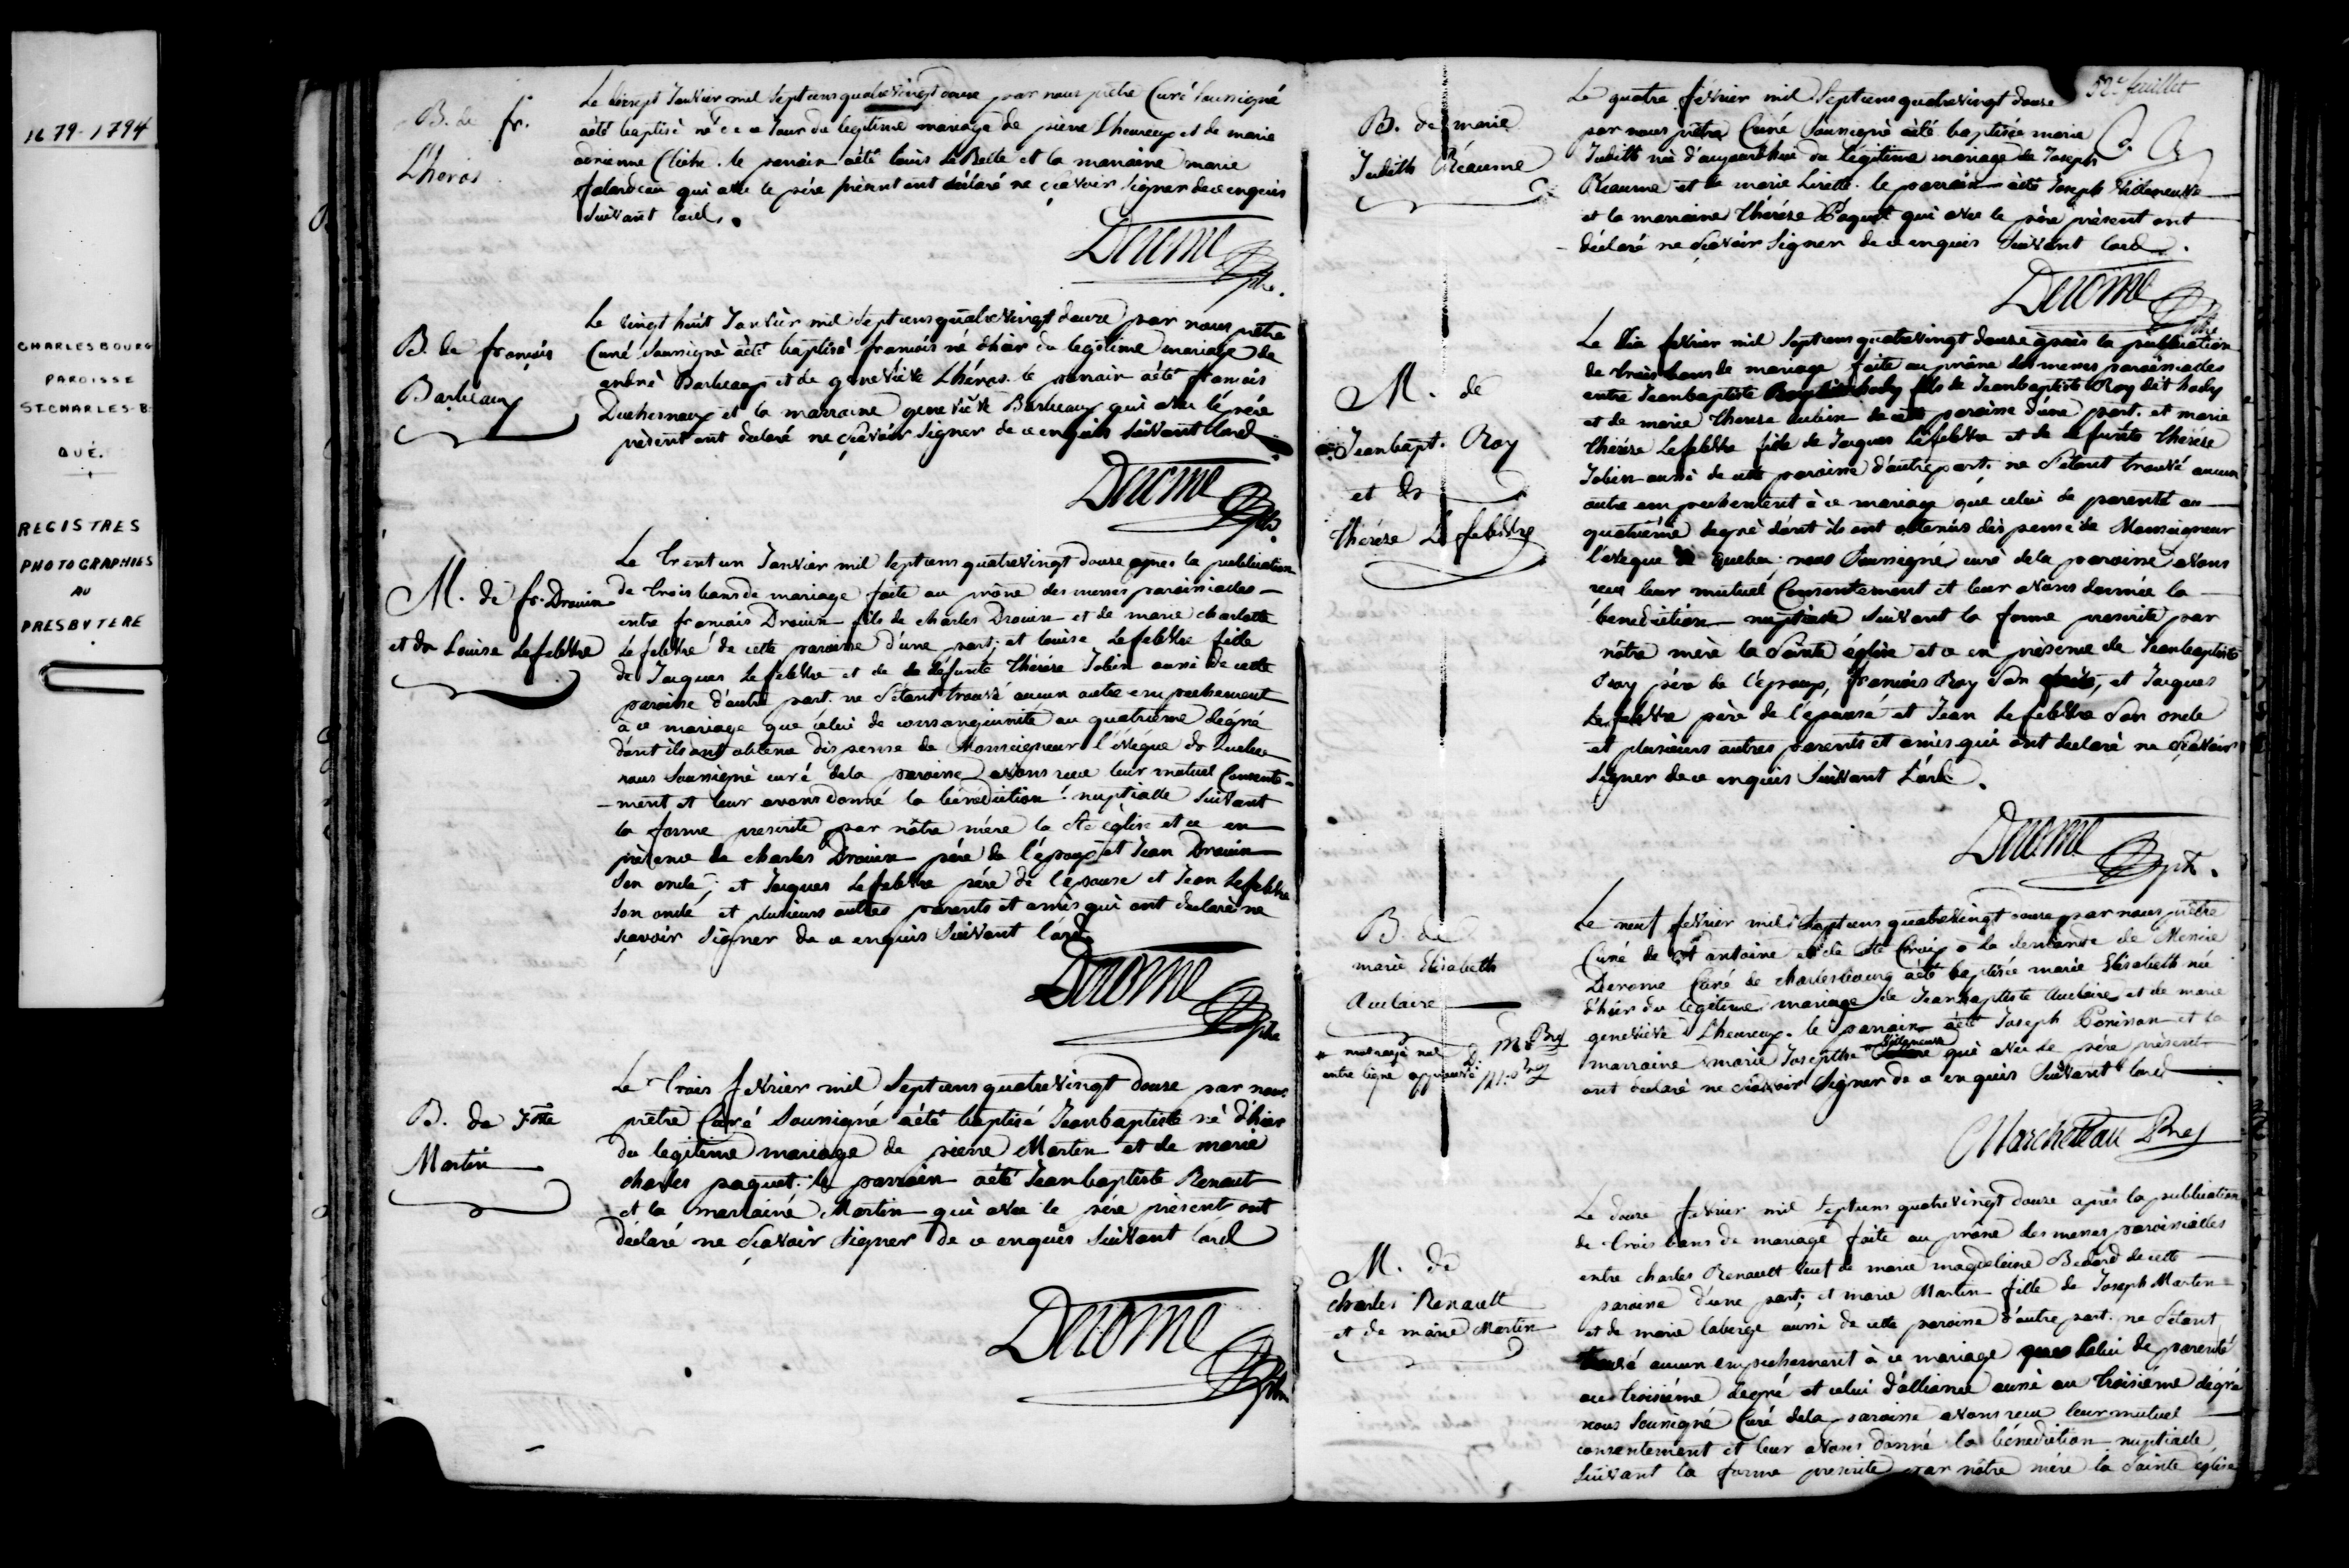 1679-1794
CHARLESBOURG
PAROISSE
ST. CHARLES-B.
QUÉ.
REGISTRES
PHOTOGRAPHIÉS
AU
PRESBYTERE
B. de fr.
L'heros
Le janvier mil Septcens quatrevingt douze par nous prêtre Curé Soussigné
aété baptisé né de ce Jour du legitime mariage de pierre L'heureux et de marie
adrienne Cliche. le parrain aété louis et la marraine marie
falardeau qui avec le père présent ont déclaré ne sçavoir Signer de ce enquis
Suivant l'ord.
Derome ptre.
B. de françois
Barbeaux
Le vingt huit Janvier mil Septcens quatrevingt douze par nous prêtre
Curé Soussigné aété baptisé françois né d'hier du legitime mariage de
andré Barbeaux et de geneviève L'héros. le parrain aété françois
Duchesneaux et la marraine geneviève Barbeaux qui avec le père
présent ont déclaré ne sçavoir Signer de ce enquis Suivant l'ord
Derome ptre.
M. de fr. Drouin
et de Louise Lefebvre
Le trent un Janvier mil Septcens quatrevingt douze après la publication
de trois bans de mariage faite au prône des messes paroissiales
entre françois Drouin fils de charles Drouin et de marie charlotte
Lefebvre de cette paroisse d'une part; et louise Lefebvre fille
de Jacques Lefebvre et de défunte thérèse Jobin aussi de cette
paroisse d'autre part. ne S'étant trouvé aucun autre empechement
à ce mariage que celui de consanguinité au quatrième dégré
dont ils ont obtenu dispense de Monseigneur l'évêque de Quebec
nous Soussigné curé dela paroisse avons reçu leur mutuel Consente-
-ment et leur avons donné la bénédiction nuptialle Suivant
la forme prescrite par nôtre mère la Ste église et ce en
présence de charles Drouin père de l'époux et Jean Drouin
Son oncle; et Jacques Lefebvre père de l'épouse et Jean Lefebvre
Son oncle et plusieurs autres parents et amis qui ont declaré ne
sçavoir Signer de ce enquis Suivant l'ord.
Derome ptre
B. de Jtte
Martin
Le trois fevrier mil Septcens quatrevingt douze par nous
prêtre Curé Soussigné aété baptisé Jeanbaptiste né d'hier
du legitime mariage de pierre Martin et de marie
charles paquet. le parrain aété Jeanbaptiste Renaut
et la marraine Martin qui avec le père présent ont
déclaré ne sçavoir Signer de ce enquis Suivant l'ord
Derome ptre
52e feuillet
B. de marie
Judith Réaume
Le quatre février mil Septcens quatrevingt douze
par nous prêtre Curé Soussigné aété baptisée marie
Judith née d'aujourdhui du légitime mariage de Joseph
Réaume et de marie Lirette. le parrain aété Joseph Villeneuve
et la marraine thérèse Paquet qui avec le père présent ont
déclaré ne sçavoir Signer de ce enquis Suivant l'ord.
Derome ptre
M. de
Jeanbapt. Roy
et de
thérèse Lefebvre
Le fevrier mil Septcens quatrevingt douze après la publication
de trois bans de mariage faite au prône des messes paroissiales
entre Jeanbaptiste fils de Jeanbaptiste Roy dit
et de marie therese Aubin de cette paroisse d'une part. et marie
thérèse Lefebvre fille de Jacques Lefebvre et de défunte thérèse
Jobin aussi de cette paroisse d'autre part. ne S'étant trouvé aucun
autre empechement à ce mariage que celui de parenté au
quatrième degré dont ils ont obtenus dispense de Monseigneur
l'évêque de Quebec. nous Soussigné curé dela paroisse avons
reçu leur mutuel Consentement et leur avons donnée la
bénédiction nuptiale Suivant la forme prescrite par
nôtre mère la Sainte église et ce en présence de Jeanbaptiste
Roy père de l'époux, françois Roy Son et Jacques
Lefebvre père de l'épouse et Jean Lefebvre Son oncle
et plusieurs autres parents et amis qui ont declaré ne sçavoir
Signer de ce enquis Suivant l'ord.
Derome ptre.
B. de
marie Elisabeth
Auclaire
Le neuf fevrier mil Septcens quatrevingt douze par nous prêtre
Curé de St antoine et de Ste Croix à la demande de
Derome Curé de charlesbourg aété baptisée marie Elisabeth née
d'hier du legitime mariage de Jeanbaptiste Auclaire et de marie
geneviève L'heureux. le parrain aété Joseph et la
marraine marie Josephte Villeneuve qui avec le père présent
ont declaré ne sçavoir Signer de ce enquis Suivant l'ord
entre ligne approuvé
Marcheteau Ptre
M. de
charles Renault
et de marie Martin
Le douze fevrier mil Septcens quatrevingt douze après la publication
de trois bans de mariage faite au prône des messes paroissialles
entre charles Renault veuf de marie magdeleine Bedard de cette
paroisse d'une part; et marie Martin fille de Joseph Martin
et de marie laberge aussi de cette paroisse d'autre part. ne S'étant
trouvé aucun empechement à ce mariage que celui de parenté
au troisième degré et celui d'alliance aussi au troisième dégré
nous Soussigné Curé dela paroisse avons reçu leur mutuel
consentement et leur avons donné la bénédiction nuptialle
Suivant la forme prescrite par nôtre mère la Sainte église